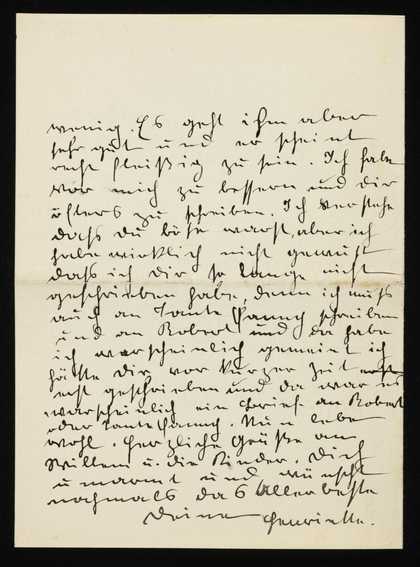 wenig. Es geht ihm aber
sehr gut und er scheint
recht fleißig zu sein. Ich habe
vor mich zu bessern und dir
öfters zu schreiben. Ich verstehe
daß du böse warst, aber ich
habe wirklich nicht gewußt
daß ich dir so lange nicht
geschrieben habe, denn ich muß
auch an Tante Fanny schreiben
und an Robert und da habe
ich warscheinlich gemeint ich
hätte Dir vor kurzer Zeit
erst geschrieben und da war es
warscheinlich ein Brief an Robert
oder Tante Fanny. Nun lebe
wohl. Herzliche Grüße an
Willem u. die Kinder. Dich
umarmt und wünscht
nochmals das Allerbeste
Deine Henriette.